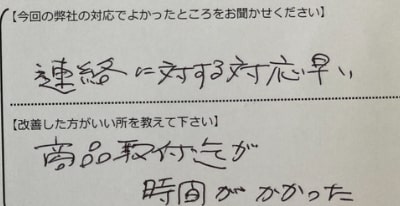 【今回の弊社の対応でよかったところをお聞かせください】
連絡に対する対応早い
【改善した方がいい所を教えて下さい】
商品取付迄が
時間がかかった